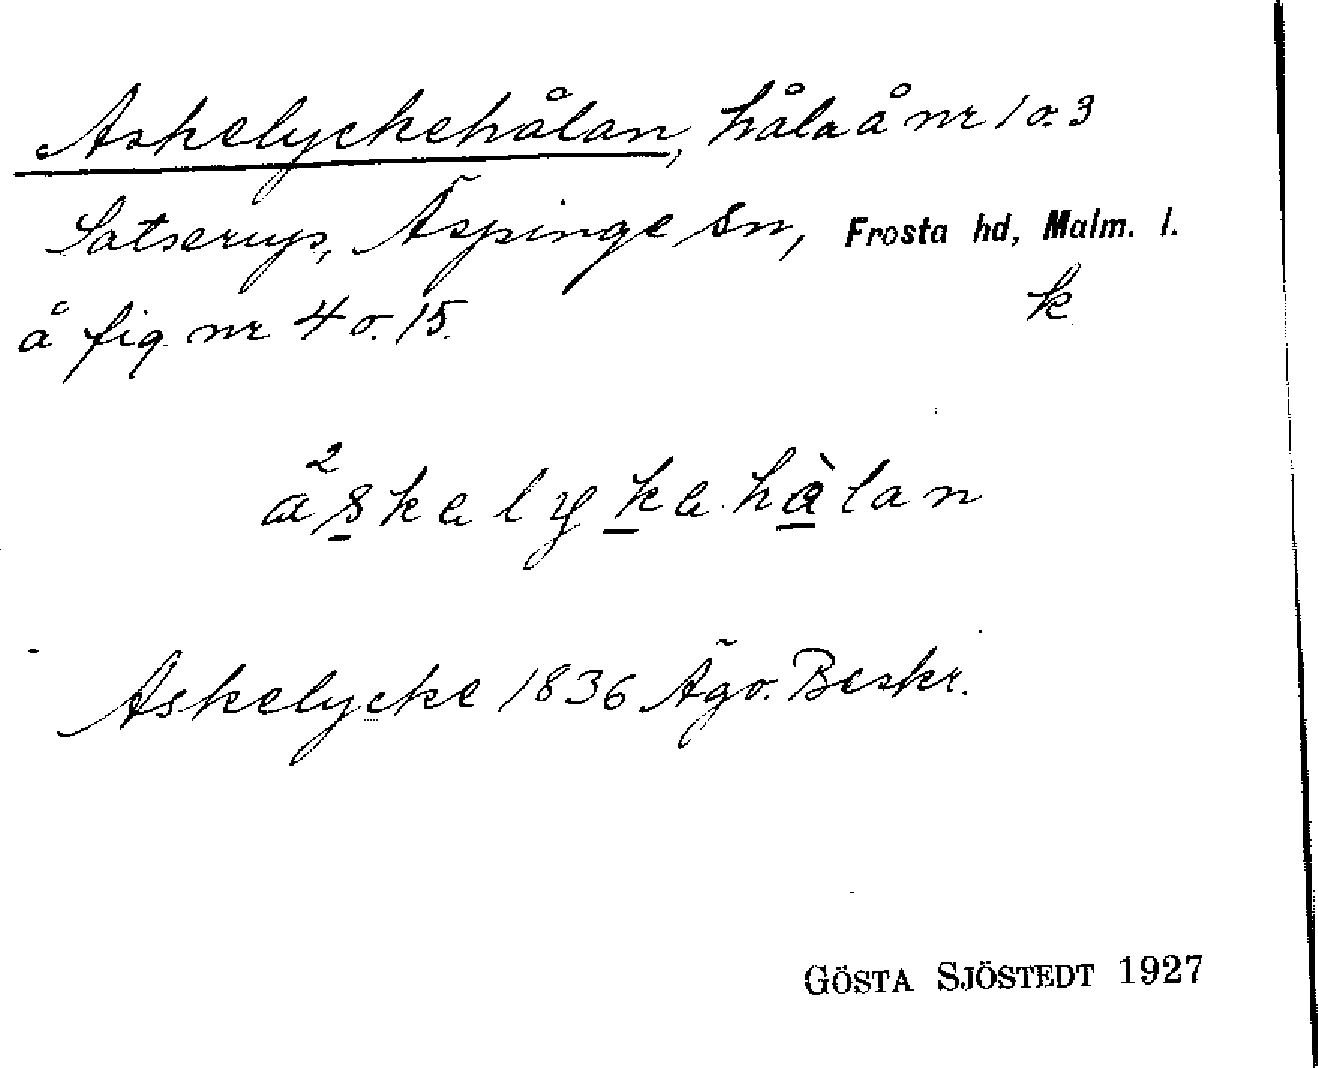 Askelyckehålan, håla å nr 1 o. 3
Satserup, Äspinge sn, Frosta hd, Malm. l.
å fig. nr 4 o. 15.
k
Askelycke 1836 Ägo. Beskr.
GÖSTA SJÖSTEDT 1927